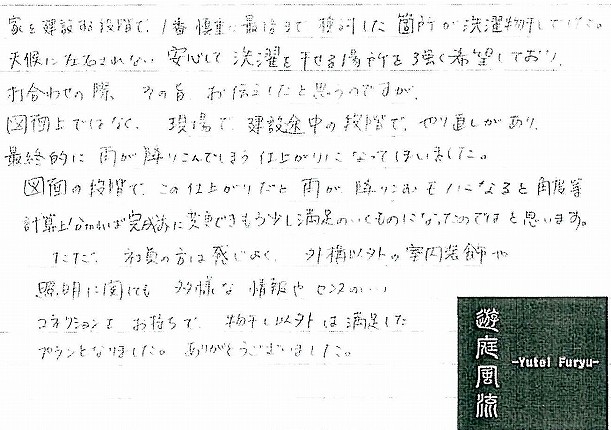 家を建設する段階で、1番慎重に最後まで検討した箇所が洗濯物干しでした。
天候に左右されない 安心して 洗濯を干せる場所を強く希望しており、
打合わせの際、その旨 お伝えしたと思うのですが、
図面上ではなく、現場で、建設途中の段階で、やり直しがあり、
最終的に 雨が降りこんでしまう仕上がりになってしまいました。
図面の段階で、この仕上がりだと 雨が 降りこむモノになると 角度等
計算上分かれば完成前に変更できもう少し満足のいくものになったのではと思います。
ただ、社員の方は感じよく、外構以外の室内装飾や
照明に関しても 多様な 情報や センスのいい
コネクションを お持ちで、物干し以外は満足した
プランとなりました。ありがとうございました。
遊庭風流
-Yutei Furyu-